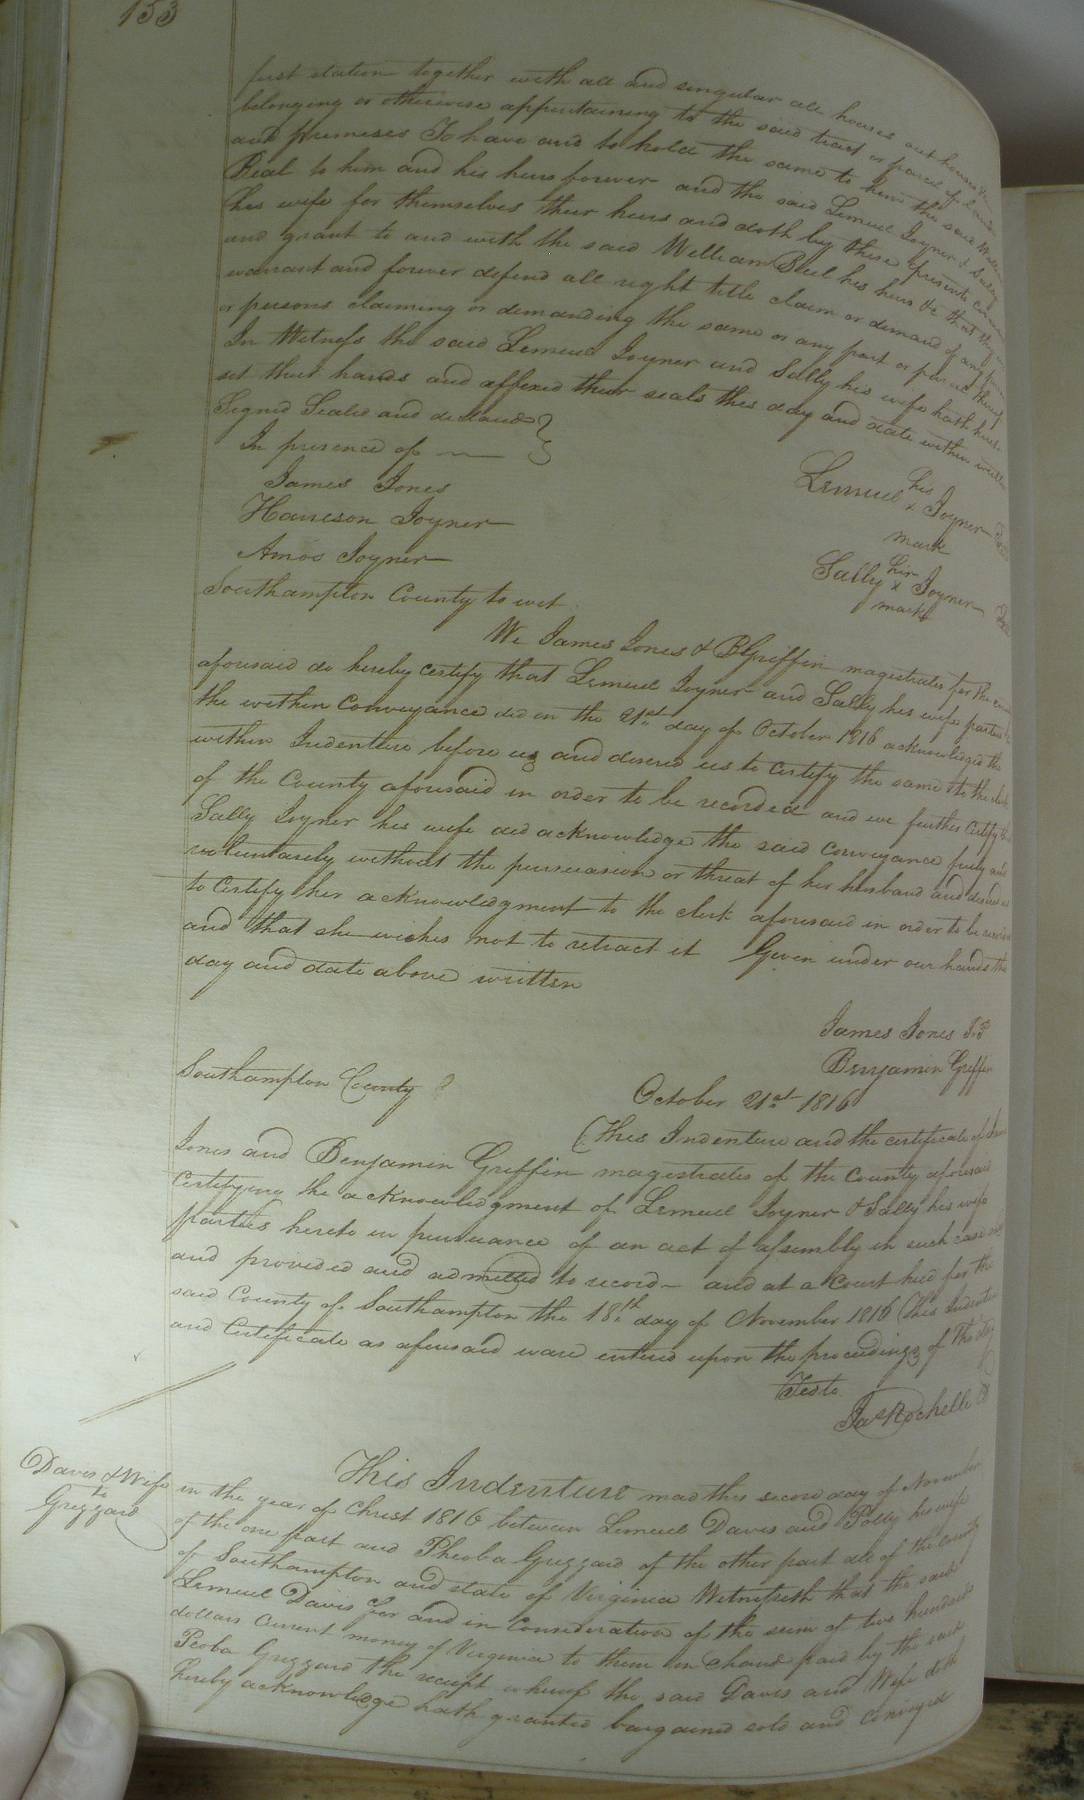 153
first station together with all and singular all houses out houses &c
belonging or otherwise appertaining to the said tract or parcel of land
and premises To have and to hold the same to him the said William
Beal to him and his heirs forever and the said Lemuel Joyner & Sally
his wife for themselves their heirs and doth by these presents covenant
and grant to and with the said William Beel his heirs &c that they
warrant and forever defend all right title claim or demand of any person
or persons claiming or demanding the same or any part or parcel thereof
In Witness the said Lemuel Joyner and Sally his wife hath hereto
set their hands and affixed their seals this day and date within
Signed Sealed and delivered }
In presence of
James Jones
Harreson Joyner
Amos Joyner
his
Lemuel x Joyner
mark
her
Sally x Joyner
mark
Southampton County to wit
We James Jones & B Griffin magistrates for the
aforesaid do hereby certify that Lemuel Joyner and Sally his wife parties
the within conveyance did on the 21st day of October 1816 acknowledged the
within Indenture before us and desired us to certify the same to the clerk
of the County aforesaid in order to be recorded and we further certify
Sally Joyner his wife did acknowledge the said conveyance freely and
voluntarely without the persuasion or threat of her husband and desired us
to certify her acknowledgment to the clerk aforesaid in order to be
and that she wishes not to retract it Given under our hands the
day and date above written
James Jones J.P
Benjamin Griffin
Southampton County
October 21st 1816
This Indenture and the certificate of
Jones and Benjamin Griffin magistrates of the County aforesaid
certifying the acknowledgment of Lemuel Joyner & Sally his wife
parties hereto in pursuance of an act of assembly in such case
and provided and admitted to record - and at a Court held for the
said County of Southampton the 18th day of November 1816 this Indenture
and Certificate as aforesaid ware entered upon the proceedings of the day
Teste
Jas Rochelle
Davis & Wife
to
Greggard
This Indenture mad this second day of November
in the year of Christ 1816 between Lemuel Davis and Polly his wife
of the one part and Pheoba Greggard of the other part all of the county
of Southampton and state of Virginia Witnesseth that the said
Lemuel Davis for and in Consideration of the sum of two hundred
dollars current money of Virginia to them in hand paid by the said
Peoba Greggard the receipt whereof the said Davis and Wife doth
hereby acknowledge hath granted bargained sold and conveyed